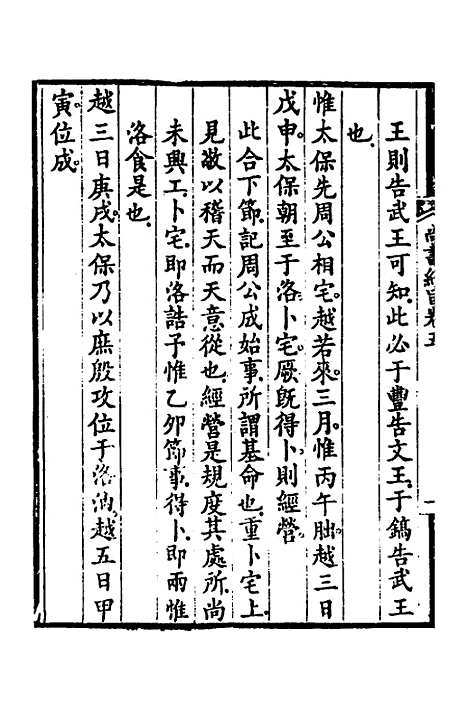 王則告武王可知此必于豐告文王于鎬告武王
也
惟太保先周公相宅越若來三月惟丙午朏越三日
戊申太保朝至于洛卜宅厥既得卜則經營
此合下節記周公成始事所謂基命也重卜宅上
見敬以稽天而天意從也經營是規度其處所尚
未興工卜宅即洛誥予惟乙卯節事得卜即兩惟
洛食是也
越三日庚戌太保乃以庶殷攻位于洛汭越五日甲
寅位成
尚書經旨卷五
一